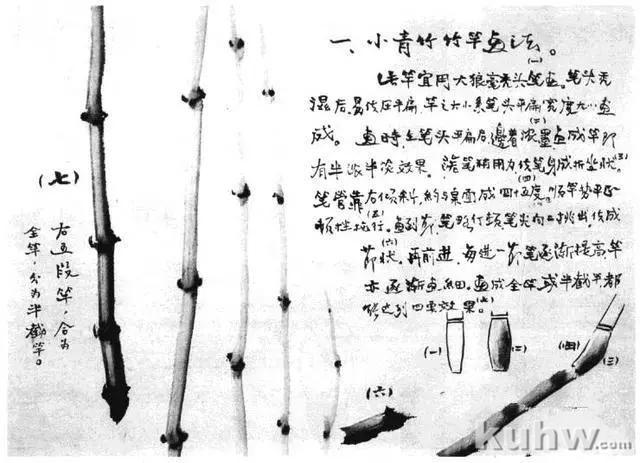 一、小青竹竹竿画法。
(一)
竿宜用大狼毫秃头笔画。笔头先
湿后,易使压平扁,竿之大小系笔头平扁宽度
(二)
成。画时,笔头平扁后,边着浓墨画成竿即
有半浓半淡效果。随笔稍用力,使笔身成折坐状。(三)
(四)
笔管靠右倾斜,约与桌面成四十五度。顺竿势平正
(五)
顿挫地行。画到节,笔略作顿笔尖向挑出,使成
(六)
节状。再前进,每进一节笔逐渐提高竿
亦逐渐画细。画成全竿,或半截竿都
(七)
能达到效果。
(一)
(二)
(四)
(三)
(六)
(七)
右五段竿,合为
全竿,分为半截竿。
kuhw.com